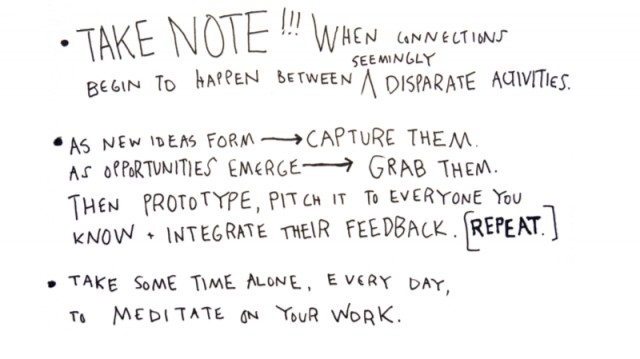 • TAKE NOTE!!! WHEN CONNECTIONS
SEEMINGLY
BEGIN TO HAPPEN BETWEEN ⋀ DISPARATE ACTIVITIES.
• AS NEW IDEAS FORM → CAPTURE THEM.
AS OPPORTUNITIES EMERGE → GRAB THEM.
THEN PROTOTYPE, PITCH IT TO EVERYONE YOU
KNOW + INTEGRATE THEIR FEEDBACK. [REPEAT.]
• TAKE SOME TIME ALONE, EVERY DAY,
TO MEDITATE ON YOUR WORK.